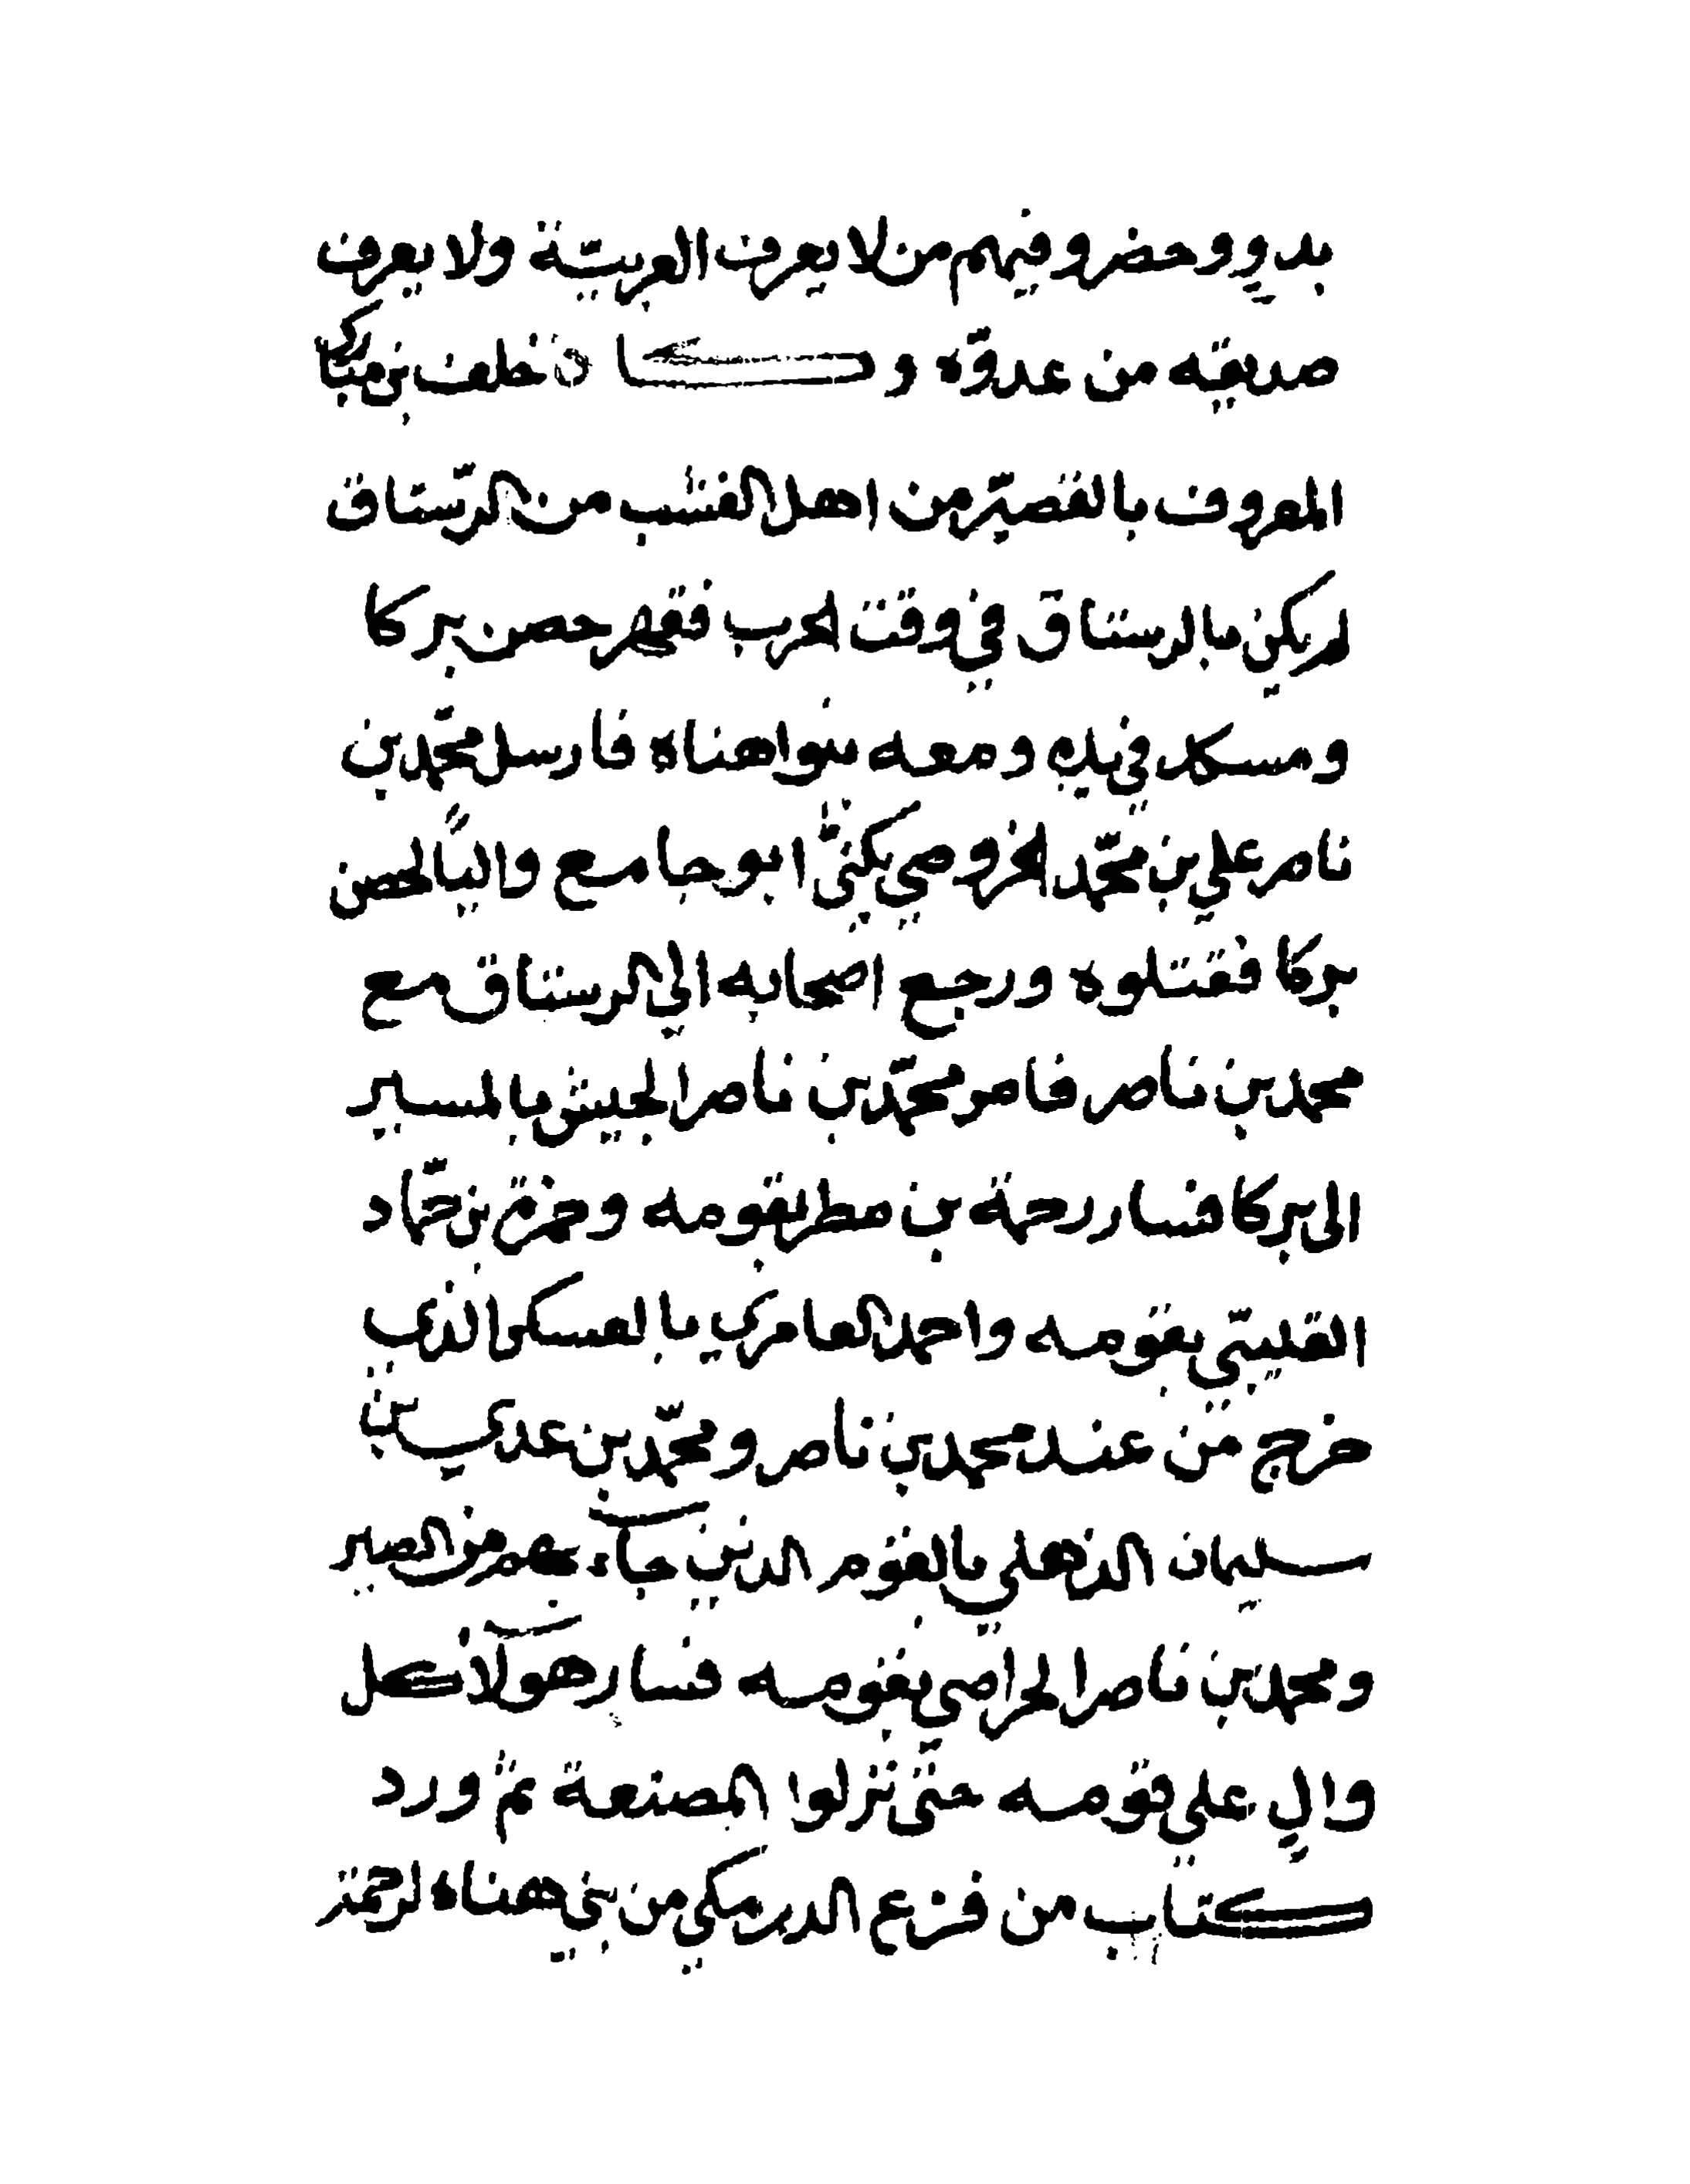 بدوٍ وحضر وفيهم من لا يعرف العربيّة ولا يعرف
صديقه من عدوّه وكان خلف بن مبارك
المعروف بالقصيّر من اهل الغشب من الرّستاق
لم يكن بالرستاق في وقت الحرب فقهر حصن بركا
ومسكد في يده ومعه بنوا هناه فارسل محمّد بن
ناصر علي بن محمّد الخروصي يكنّى ابو جامع واليًا لحصن
بركا فقتلوه ورجع اصحابه الي الرستاق مع
محمد بن ناصر فامر محمّد بن ناصر الجيش بالمسير
الى بركا فسار رحمة بن مطر بقومه وحمزة بن حمّاد
القليبّي بقومه واحمد العامري بالعسكر الذي
خرج من عند محمد بن ناصر ومحمّد بن عدي بن
سليمان الذهلي بالقوم الذين جآء بهم من الصير
ومحمد بن ناصر الحراصي بقومه فسار هولآء كل
والٍ على قومه حتّى نزلوا المصنعة ثم ورد
كتاب من قزع الدرمكي من بني هناه لرحمة